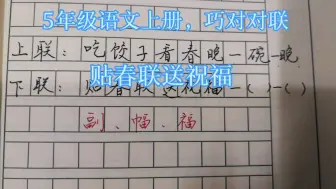 5年级语文上册，巧对对联
上联：吃饺子看春晚一碗一晚
贴春联送祝福
下联：贴春联送祝福一（ ）一（ ）
副、幅、福